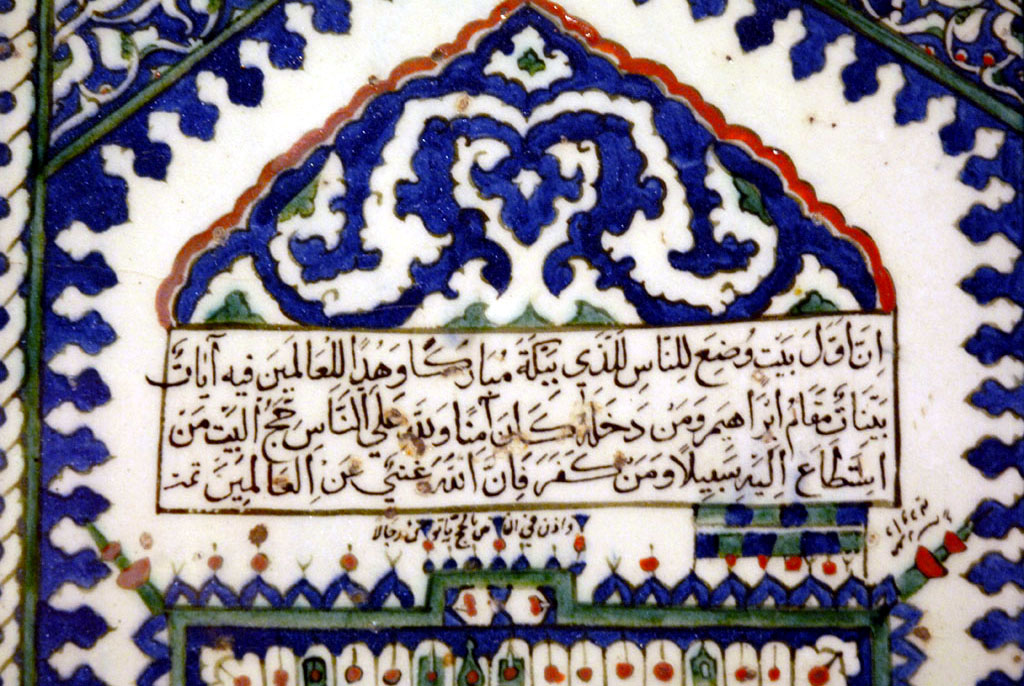 انَّ اوَّلَ بَيْت وُضِعَ لِلنَّاسِ لَلَّذي بِبَكَّةَ مُبارَكًا وَهُدًا لِلْعَالَمِينَ فيه آيَاتٌ
بَيِّنَاتٌ مَقَامُ ابْرَاهِيمَ وَمَن دَخَلَهُ كَانَ آمِنًا وَلِلّهِ عَلَى النَّاسِ حَجُّ الْبَيْتِ مَنِ
اسْتَطَاعَ الَيْهِ سَبِيلًا وَمَنْ كَفَرَ فَاِنَّ اللهَ غَنِيٌّ عَنِ الْعَالَمِينَ تمت
واذن في الناس بالحج ياتوك رجالا